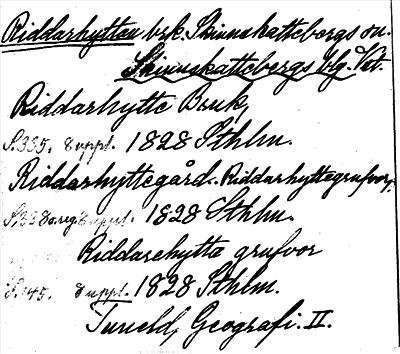 Riddarhyttan brk. Skinnskattebergs sn.
Skinnskattebergs bg. Vst.
Riddarhytte Bruk,
S. 335. 8 uppl. 1828 Sthlm.
Riddarhyttegård. Riddarhyttegrufvor,
S. 338 8 uppl. 1828 Sthlm.
Riddarehytte grufvor
S. 145. 8 uppl. 1828 Sthlm.
Tuneld, Geografi. II.